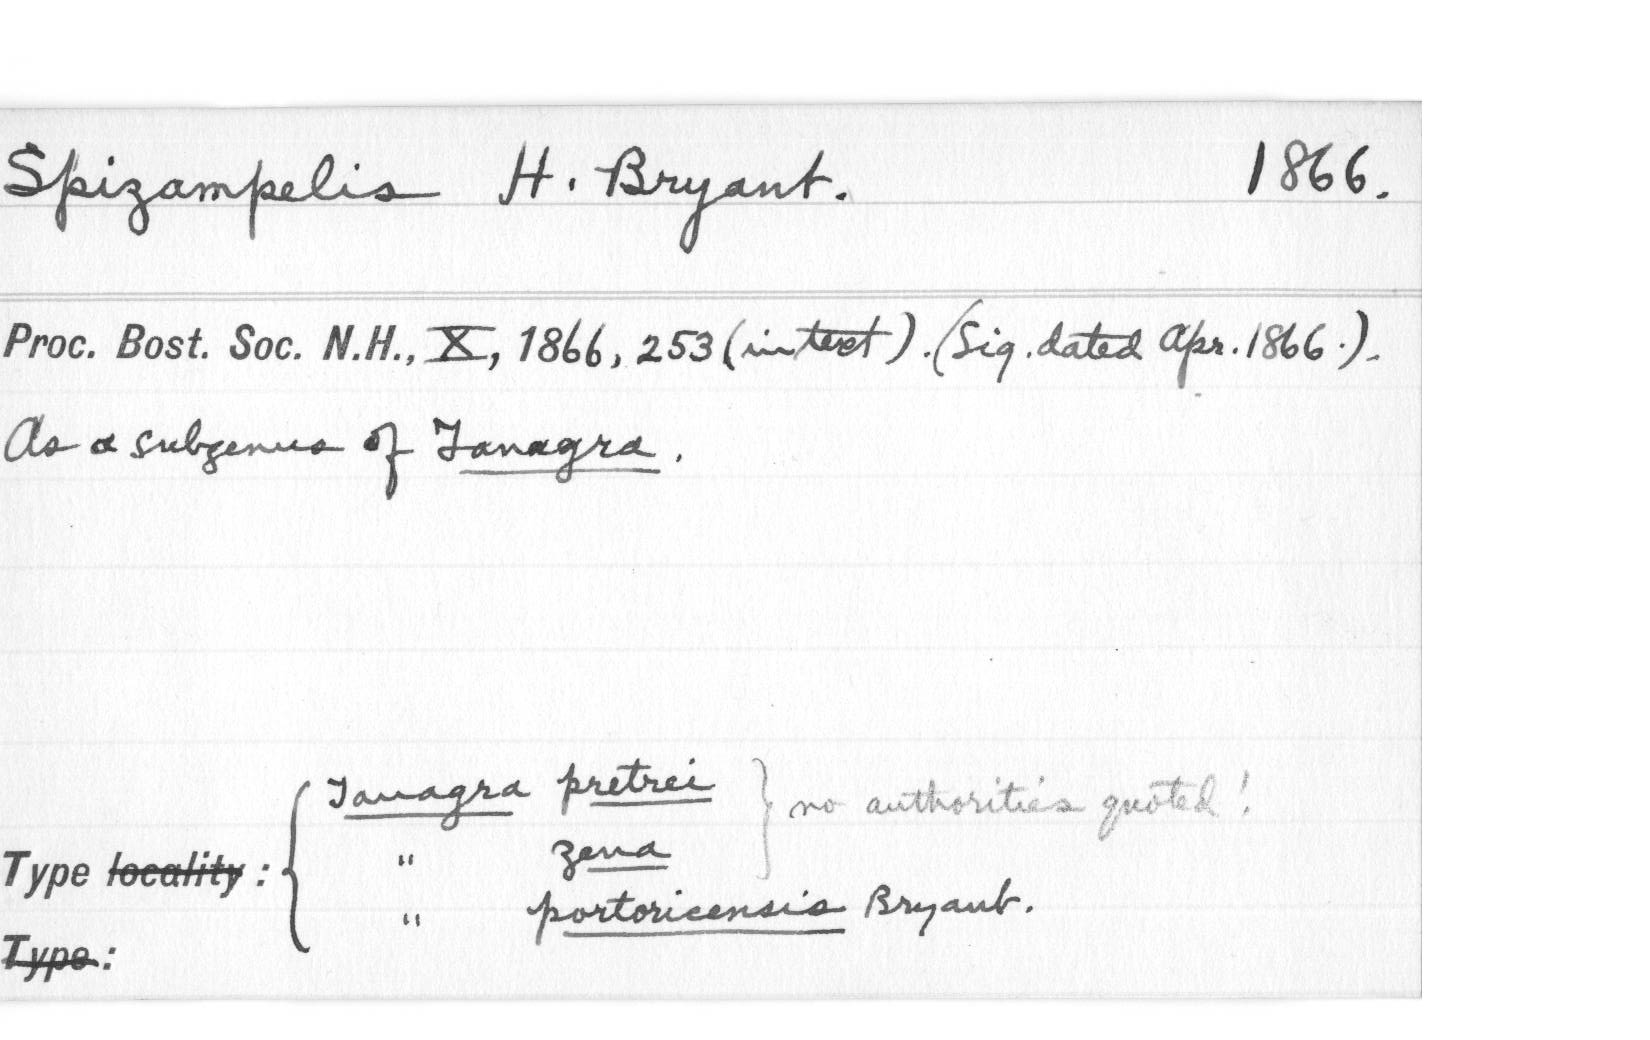 Spizampelis H. Bryant. 1866.
Proc. Bost. Soc. N.H., X, 1866, 253 (in text). (Sig. dated Apr. 1866.).
As a subgenus of Tanagra.
Tanagra pretrei } no authorities quoted!
Type locality : { " zena
" portoricensis Bryant.
Type :